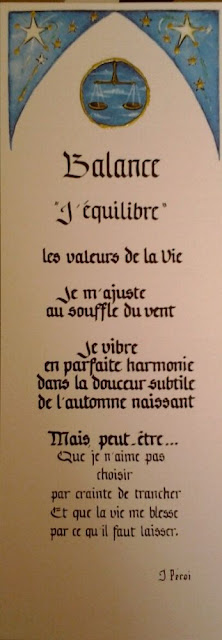 Balance
"J'équilibre"
les valeurs de la Vie
Je m'ajuste
au souffle du vent
Je vibre
en parfaite harmonie
dans la douceur subtile
de l'automne naissant
Mais peut-être...
Que je n'aime pas
choisir
par crainte de trancher
Et que la vie me blesse
par ce qu'il faut laisser.
J Peroi